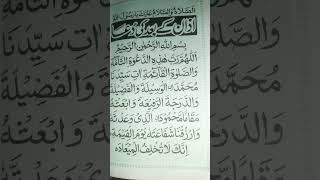 الصلوٰۃ والسلام علیک یا رسول اللہ
اذان کے بعد کی دعا
بِسْمِ اللهِ الرَّحْمٰنِ الرَّحِيْمِ
اَللّٰهُمَّ رَبَّ هٰذِهِ الدَّعْوَةِ التَّامَّةِ
وَالصَّلٰوةِ الْقَآئِمَةِ اٰتِ سَيِّدَنَا
مُحَمَّدَانِ الْوَسِيْلَةَ وَالْفَضِيْلَةَ
وَالدَّرَجَةَ الرَّفِيْعَةَ وَابْعَثْهُ
مَقَامًا مَّحْمُوْدَانِ الَّذِىْ وَعَدْتَّهٗ
وَارْزُقْنَا شَفَاعَتَهٗ يَوْمَ الْقِيٰمَةِ
اِنَّكَ لَا تُخْلِفُ الْمِيْعَادَ